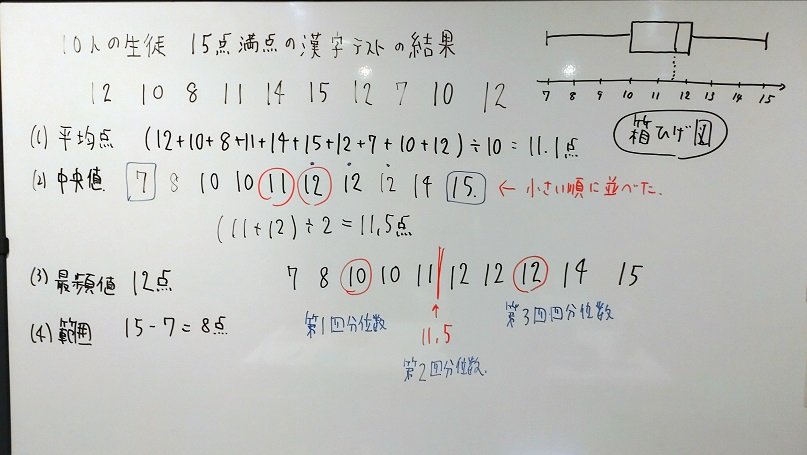 10人の生徒 15点満点の漢字テストの結果
12 10 8 11 14 15 12 7 10 12
7 8 9 10 11 12 13 14 15
箱ひげ図
(1) 平均点 (12+10+8+11+14+15+12+7+10+12)÷10=11.1点
(2) 中央値 7 8 10 10 11 12 12 12 14 15 ← 小さい順に並べた.
(11+12)÷2=11.5点
(3) 最頻値 12点
7 8 10 10 11 12 12 12 14 15
(4) 範囲 15-7=8点
第1四分位数 ↑ 第3四四分位数
11.5
第2四分位数.